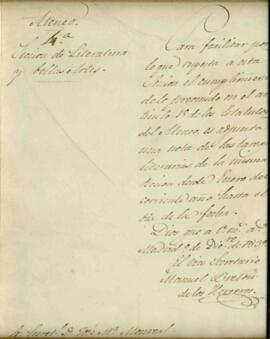 Ateneo.
4.a
Sección de Literatura
y bellas Artes.
Para facilitar, por
lo que respecta a esta
Sección el cumplimiento
de lo prevenido en el ar-
tículo 15 de los Estatutos
del Ateneo, es adjunta
una nota de las tareas
literarias de la misma
Sección desde Enero del
corriente año hasta el
día de la fecha.
Dios gue a V.
Madrid 9 de
El vice Secretario
Manuel Bretón
de los Herreros